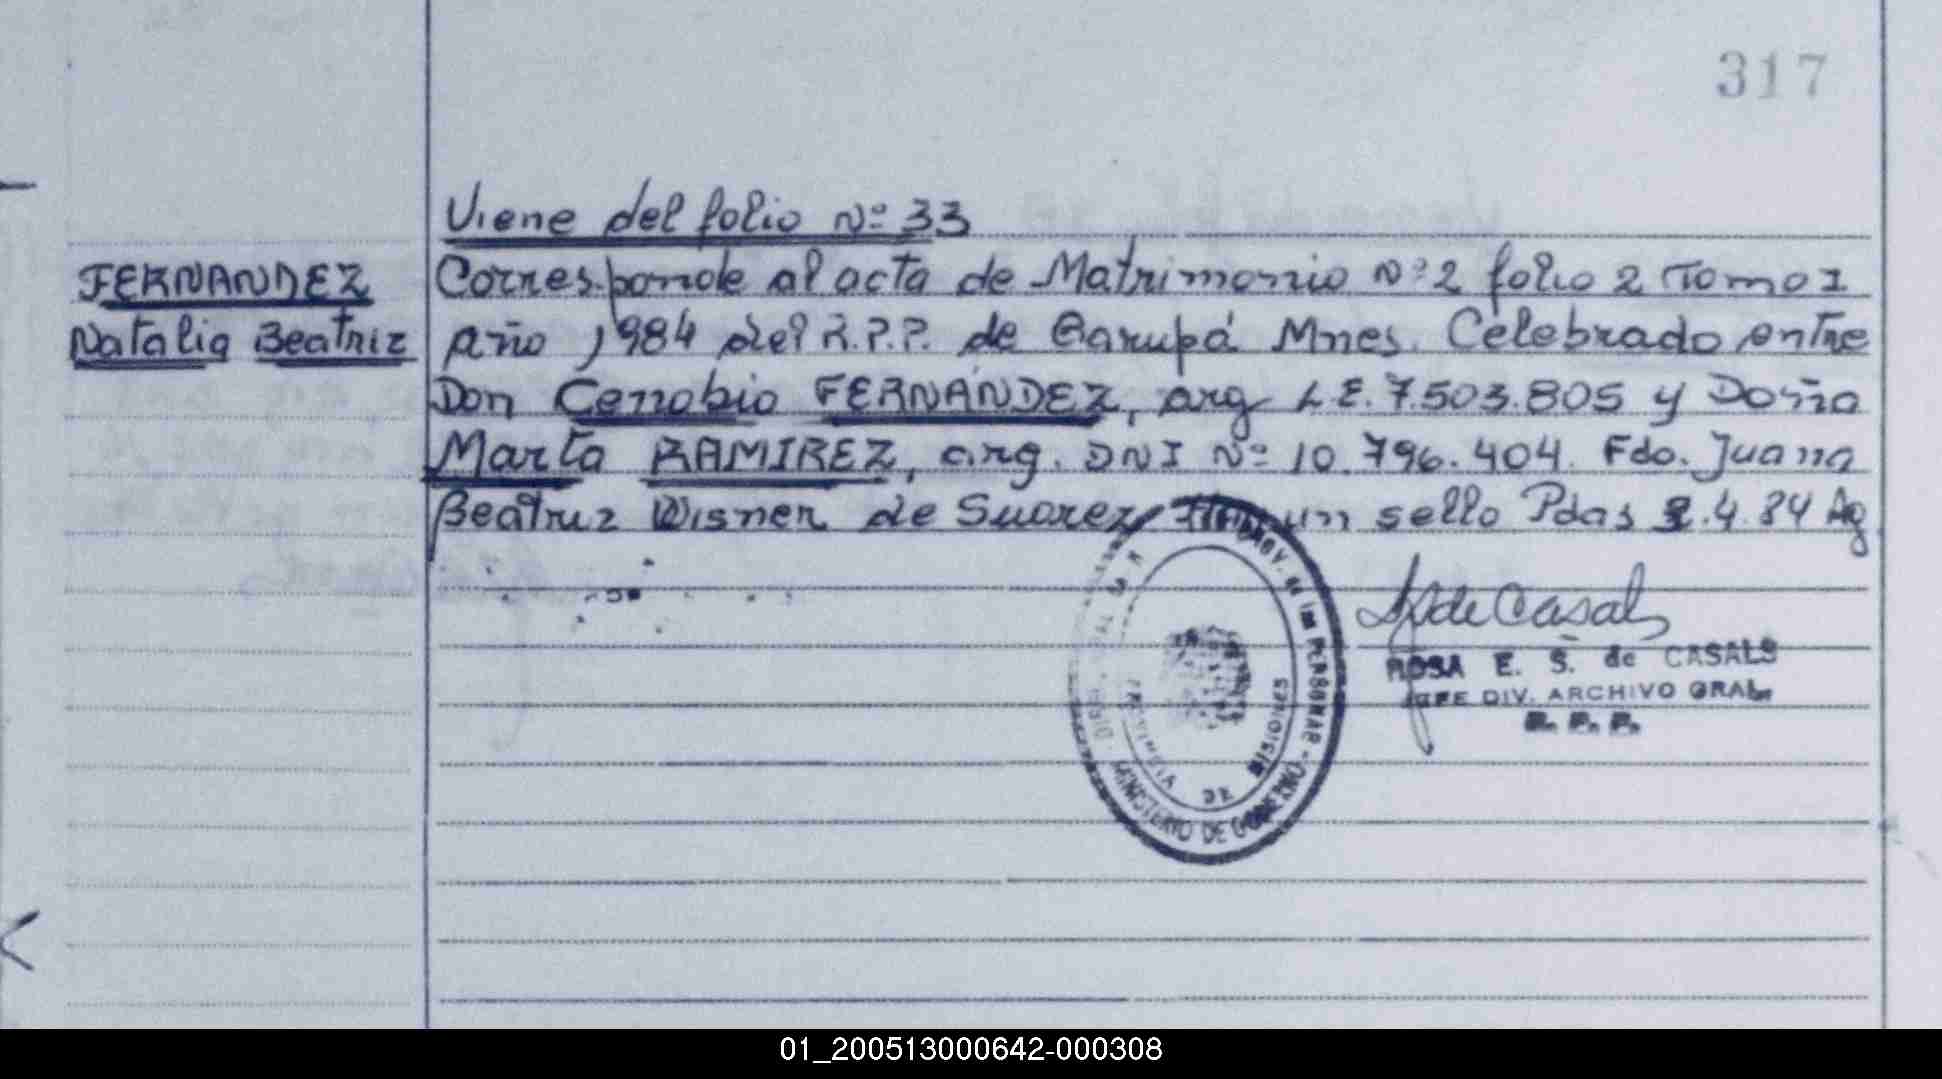 317
Viene del folio Nº 33
FERNANDEZ
Natalia Beatriz
Corresponde al acta de Matrimonio Nº 2 folio 2 Tomo 1
año 1984 del R.P.P. de Garupá Mnes. Celebrado entre
Don Cenobio FERNÁNDEZ, arg L.E. 7.503.805 y Doña
Marta RAMIREZ, arg. DNI Nº 10.796.404. Fdo. Juana
Beatriz Wisner de Suarez Hay un sello Pdas .4.84 Ag
de Casals
ROSA E. S. de CASALS
JEFE DIV. ARCHIVO GRAL.
R. P. P.
PROV. de las PERSONAS -
MINISTERIO DE GOBIERNO
PROVINCIA DE MISIONES
01_200513000642-000308